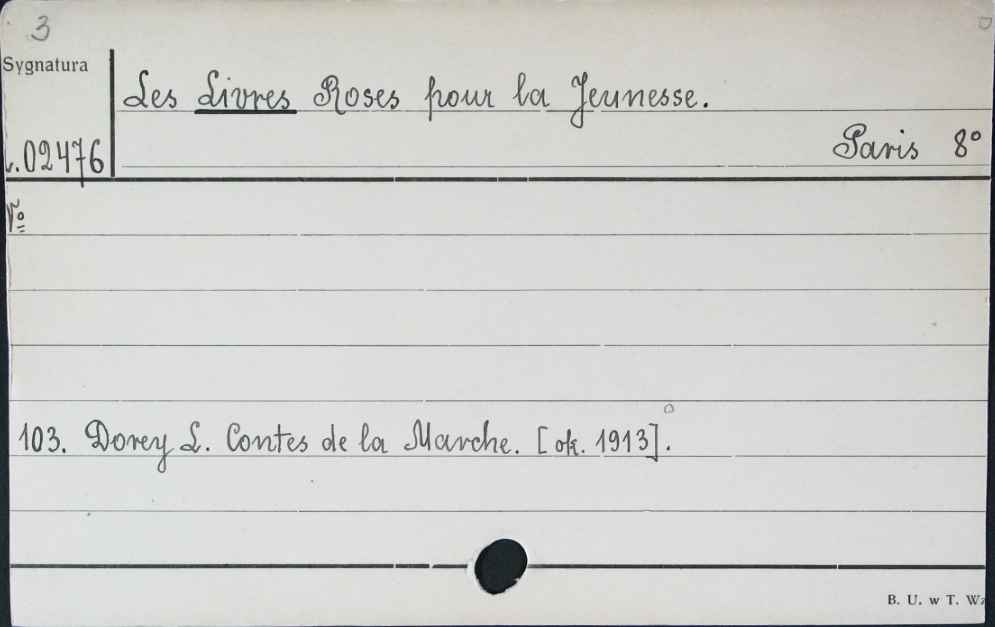 3
Sygnatura
Les Livres Roses pour la Jeunesse.
Paris 8°
.02476
No
103. Dorey L. Contes de la Marche. [ok. 1913].
B. U. w T.